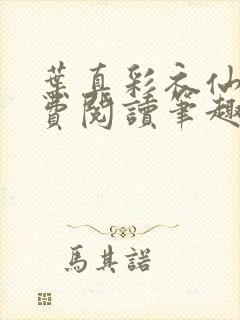 葉真彩衣仙
費閱讀筆趣
馬其諾